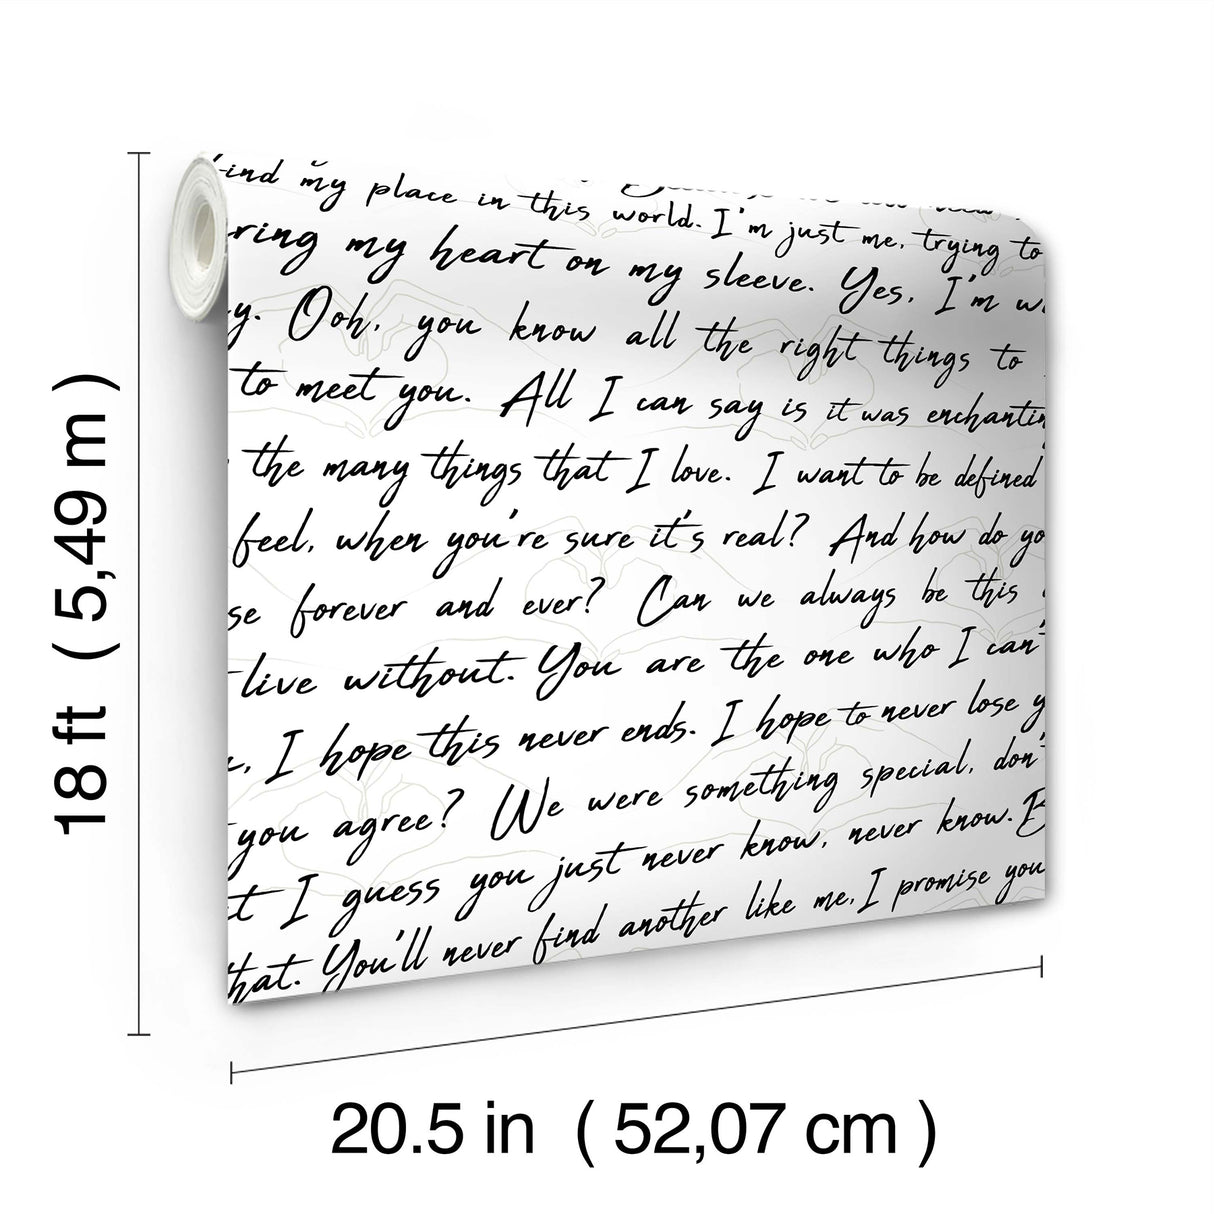 find my place in this world. I'm just me, trying to
ring my heart on my sleeve. Yes, I'm
y. Ooh, you know all the right things to
to meet you. All I can say is it was enchantin
the many things that I love. I want to be defined
feel, when you're sure it's real? And how do yo
se forever and ever? Can we always be this
live without. You are the one who I can'
I hope this never ends. I hope to never lose y
you agree? We were something special, don'
t I guess you just never know, never know. B
hat. You'll never find another like me, I promise you
18 ft ( 5,49 m )
20.5 in ( 52,07 cm )